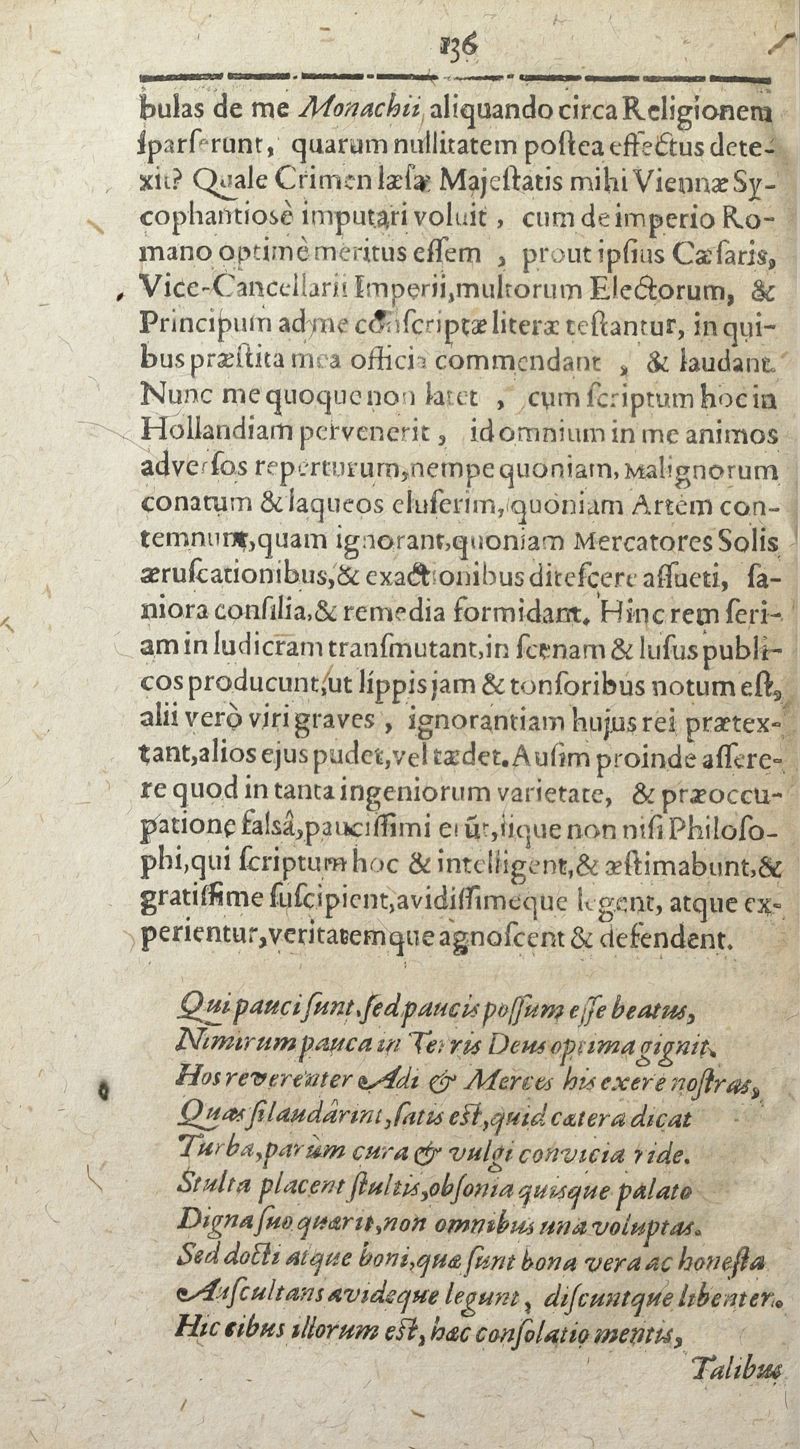 136
bulas de me Monachii aliquando circa Religionem
ſparſerunt, quarum nullitatem poſtea effectus dete-
xit? Quale Crimen læſæ Majeſtatis mihi Viennæ Sy-
cophantiosè imputari voluit, cum de imperio Ro-
mano optimè meritus eſſem, prout ipſius Cæſaris,
Vice-Cancellarii Imperii, multorum Electorum, &
Principum ad me conſcriptæ literæ teſtantur, in qui-
bus præſtita mea officia commendant, & laudant.
Nunc me quoque non latet, cum ſcriptum hoc in
Hollandiam pervenerit, id omnium in me animos
adverſos reperturum, nempe quoniam, Malignorum
conatum & laqueos eluſerim, quoniam Artem con-
temnunt, quam ignorant, quoniam Mercatores Solis
æruſcationibus, & exactionibus diteſcere aſſueti, ſa-
niora conſilia, & remedia formidant. Hinc rem ſeri-
am in ludicram tranſmutant, in ſcenam & luſus publi-
cos producunt, ut lippis jam & tonſoribus notum eſt,
alii verò viri graves, ignorantiam hujus rei prætex-
tant, alios ejus pudet, vel tædet. Auſim proinde aſſere-
re quod in tanta ingeniorum varietate, & præoccu-
patione falsâ, pauciſſimi erūt, iique non niſi Philoſo-
phi, qui ſcriptum hoc & intelligent, & æſtimabunt, &
gratiſſime ſuſcipient, avidiſſimeque legent, atque ex-
perientur, veritatemque agnoſcent & defendent.
Qui pauci ſunt, ſed paucis poſſum eſſe beatus,
Nimirum pauca in Terris Deus optima gignit.
Hos reverenter Adi & Merces his exere noſtras,
Quas ſi laudârint, ſatis eſt, quid cætera dicat
Turba, parùm cura & vulgi convicia ride.
Stulta placent ſtultis, obſonia quisque palato
Digna ſuo quærit, non omnibus una voluptas.
Sed docti atque boni, quæ ſunt bona vera ac honeſta
Auſcultans avideque legunt, diſcuntque libenter.
Hic cibus illorum eſt, hæc conſolatio mentis,
Talibus